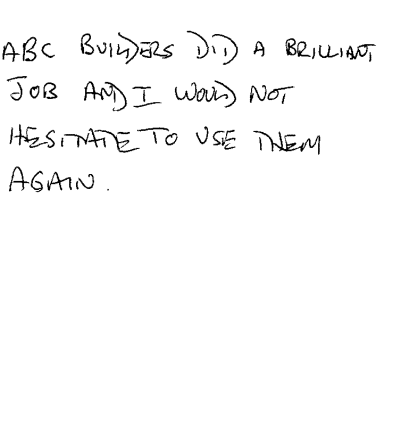 ABC BUILDERS DID A BRILLIANT
JOB AND I WOULD NOT
HESITATE TO USE THEM
AGAIN.